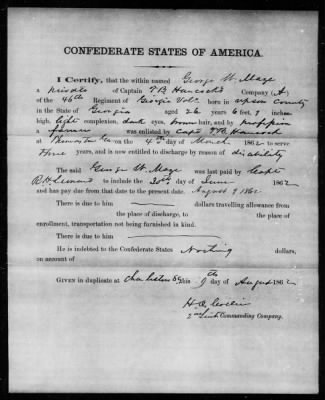 CONFEDERATE STATES OF AMERICA.
I Certify, that the within named George W. Maze
a private of Captain T B Hancock's Company (A)
of the 46th Regiment of Georgia Vols. born in upson county
in the State of Georgia aged 26 6 feet, 9 inches
high, light complexion, dark eyes, brown hair, and by
a farmer was enlisted by Capt T B. Hancock
at on the 4th day of March 1862 to serve
Three years, and is now entitled to discharge by reason of disability
The said George W. Maze was last paid by Capt
R H to include the 30th day of June 1862
and has pay due from that to the present date. August 9 1862
There is due to him dollars travelling allowance from
the place of discharge, to the place of
enrollment, transportation not being furnished in kind.
There is due to him
He is indebted to the Confederate States Nothing dollars,
on account of
GIVEN in duplicate at this 9th day of August 1862
2nd Lieut Commanding Company.